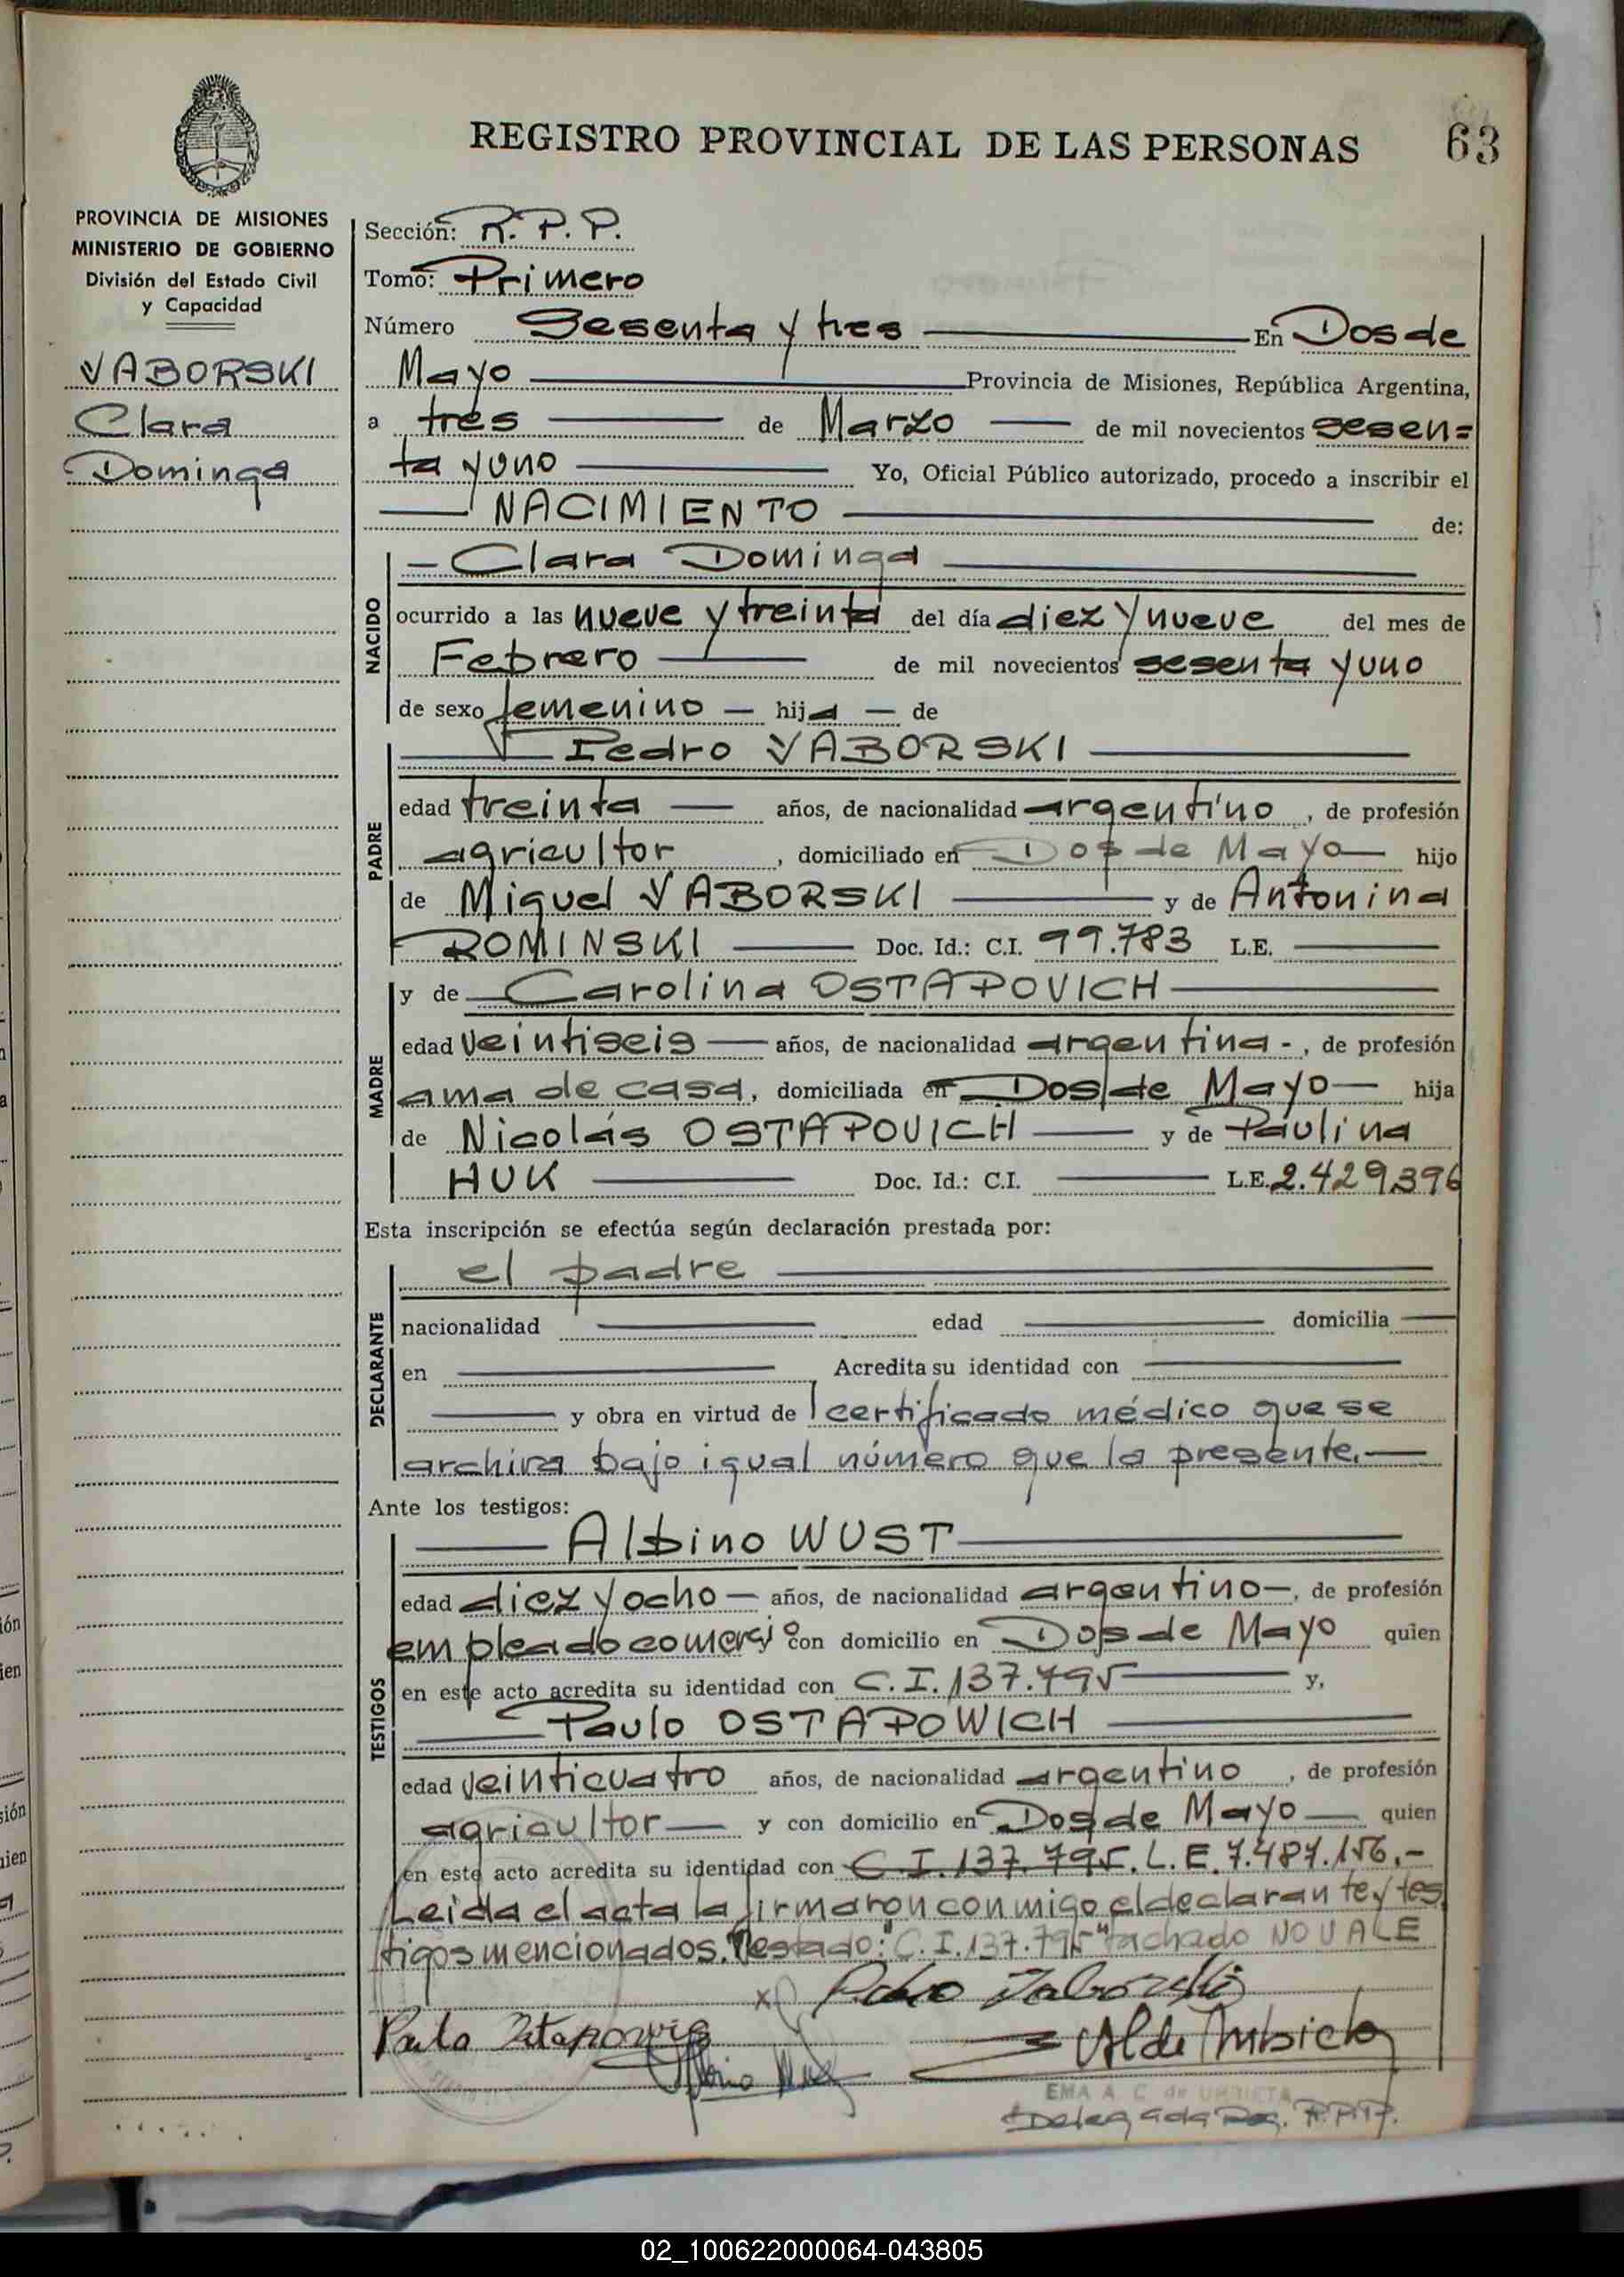 REGISTRO PROVINCIAL DE LAS PERSONAS 63
PROVINCIA DE MISIONES
MINISTERIO DE GOBIERNO
División del Estado Civil
y Capacidad
VABORSKI
Clara
Dominga
Sección: R.P.P.
Tomo: Primero
Número Sesenta y tres En Dos de
Mayo Provincia de Misiones, República Argentina,
a tres de Marzo de mil novecientos sesen=
ta y uno Yo, Oficial Público autorizado, procedo a inscribir el
NACIMIENTO de:
NACIDO
Clara Dominga
ocurrido a las nueve y treinta del día diez y nueve del mes de
Febrero de mil novecientos sesenta y uno
de sexo femenino hija de
PADRE
Pedro VABORSKI
edad treinta años, de nacionalidad argentino, de profesión
agricultor, domiciliado en Dos de Mayo hijo
de Miguel VABORSKI y de Antonina
ROMINSKI Doc. Id.: C.I. 99.783 L.E.
MADRE
y de Carolina OSTAPOVICH
edad veintiseis años, de nacionalidad argentina-, de profesión
ama de casa, domiciliada en Dos de Mayo hija
de Nicolás OSTAPOVICH y de Paulina
HUK Doc. Id.: C.I. L.E. 2.429.396
Esta inscripción se efectúa según declaración prestada por:
DECLARANTE
el padre
nacionalidad edad domicilia
en Acredita su identidad con
y obra en virtud de certificado médico que se
archiva bajo igual número que la presente.
Ante los testigos:
TESTIGOS
Albino WUST
edad diez y ocho años, de nacionalidad argentino, de profesión
empleado comercio con domicilio en Dos de Mayo quien
en este acto acredita su identidad con C.I. 137.795 y,
Paulo OSTAPOWICH
edad veinticuatro años, de nacionalidad argentino, de profesión
agricultor y con domicilio en Dos de Mayo quien
en este acto acredita su identidad con C.I. 137.795. L.E. 7.487.156.-
Leida el acta la firmaron conmigo el declarante y tes
tigos mencionados. Testado: "C.I. 137.795" tachado NO VALE
Pedro Vaborski
EMA A. C. de URRIETA
Delegada Reg. R.P.P.
02_100622000064-043805